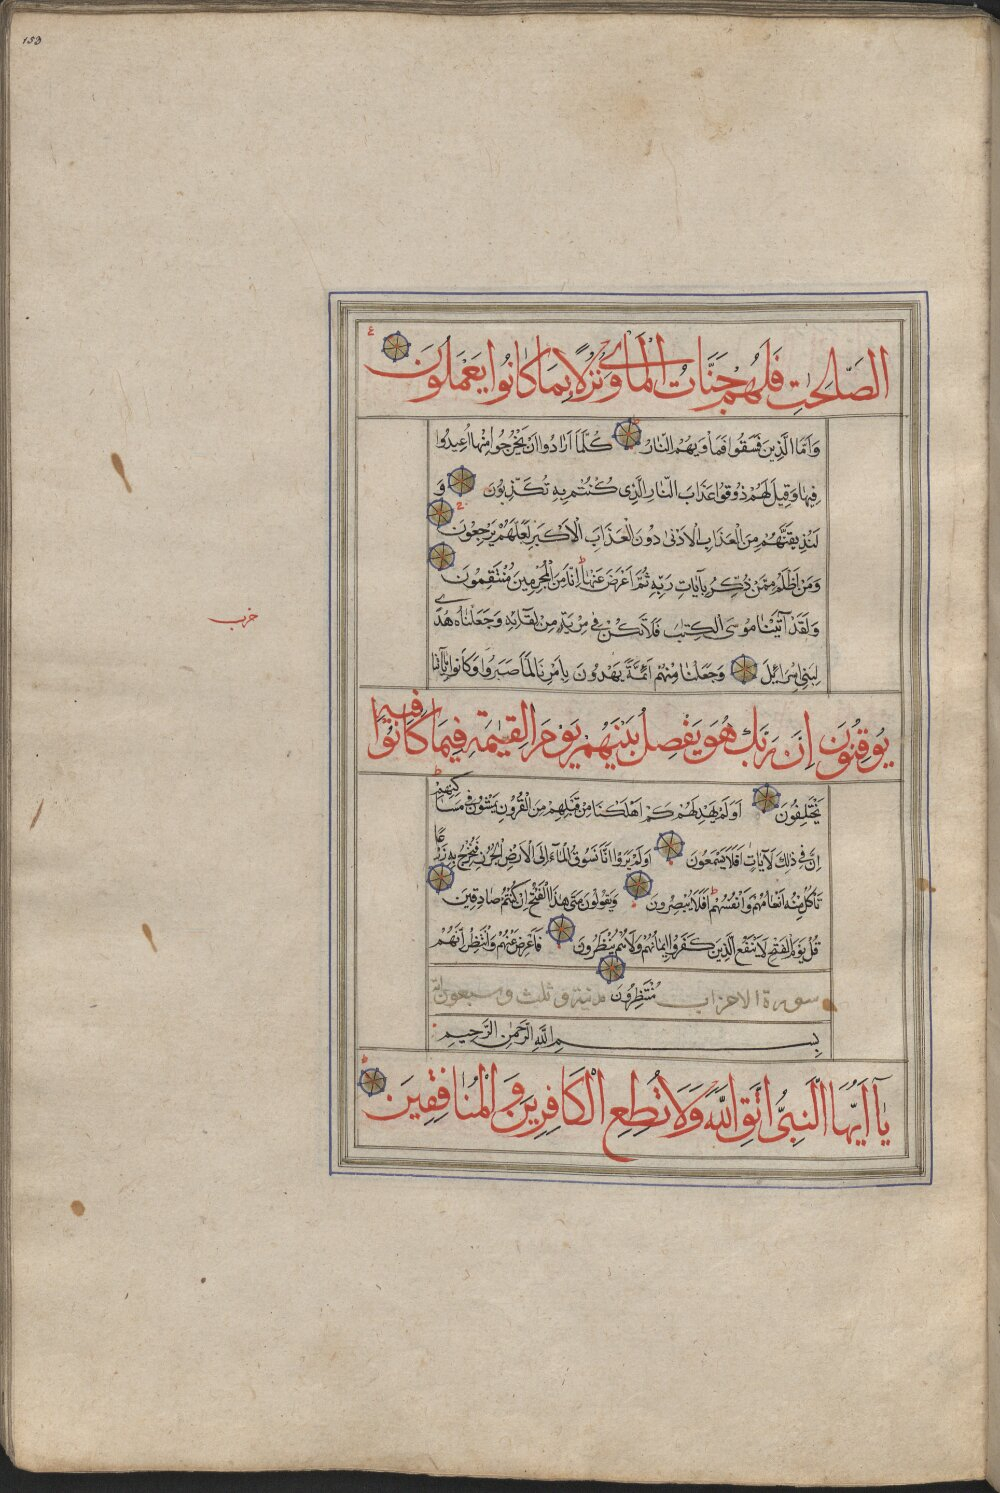 153
الصَّالِحٰتِ فَلَهُمْ جَنَّاتُ الْمَاْوٰى نُزُلًا بِمَا كَانُوا يَعْمَلُونَ
وَاَمَّا الَّذِينَ فَسَقُوا فَمَاْوٰيهُمُ النَّارُ كُلَّمَا اَرَادُوا اَنْ يَخْرُجُوا مِنْهَا اُعِيدُوا
فِيهَا وَقِيلَ لَهُمْ ذُوقُوا عَذَابَ النَّارِ الَّذِى كُنْتُمْ بِهِ تُكَذِّبُونَ وَ
لَنُذِيقَنَّهُمْ مِنَ الْعَذَابِ الْاَدْنٰى دُونَ الْعَذَابِ الْاَكْبَرِ لَعَلَّهُمْ يَرْجِعُونَ
وَمَنْ اَظْلَمُ مِمَّنْ ذُكِّرَ بِاٰيَاتِ رَبِّهِ ثُمَّ اَعْرَضَ عَنْهَا اِنَّا مِنَ الْمُجْرِمِينَ مُنْتَقِمُونَ
وَلَقَدْ اٰتَيْنَا مُوسَى الْكِتٰبَ فَلَا تَكُنْ فِى مِرْيَةٍ مِنْ لِقَائِهِ وَجَعَلْنَاهُ هُدًى
لِبَنِى اِسْرَائِلَ وَجَعَلْنَا مِنْهُمْ اَئِمَّةً يَهْدُونَ بِاَمْرِنَا لَمَّا صَبَرُوا وَكَانُوا بِاٰيَاتِنَا
يُوقِنُونَ اِنَّ رَبَّكَ هُوَ يَفْصِلُ بَيْنَهُمْ يَوْمَ الْقِيٰمَةِ فِيمَا كَانُوا فِيهِ
يَخْتَلِفُونَ اَوَلَمْ يَهْدِ لَهُمْ كَمْ اَهْلَكْنَا مِنْ قَبْلِهِمْ مِنَ الْقُرُونِ يَمْشُونَ فِى مَسَاكِنِهِمْ
اِنَّ فِى ذٰلِكَ لَاٰيَاتٍ اَفَلَا يَسْمَعُونَ اَوَلَمْ يَرَوْا اَنَّا نَسُوقُ الْمَاءَ اِلَى الْاَرْضِ الْجُرُزِ فَنُخْرِجُ بِهِ زَرْعًا
تَاْكُلُ مِنْهُ اَنْعَامُهُمْ وَاَنْفُسُهُمْ اَفَلَا يُبْصِرُونَ وَيَقُولُونَ مَتٰى هٰذَا الْفَتْحُ اِنْ كُنْتُمْ صَادِقِينَ
قُلْ يَوْمَ الْفَتْحِ لَا يَنْفَعُ الَّذِينَ كَفَرُوا اِيمَانُهُمْ وَلَا هُمْ يُنْظَرُونَ فَاَعْرِضْ عَنْهُمْ وَانْتَظِرْ اِنَّهُمْ
مُنْتَظِرُونَ
سورة الاحزاب مدنية وثلث وسبعون اية
بِسْمِ اللَّهِ الرَّحْمٰنِ الرَّحِيمِ
يٰٓا اَيُّهَا النَّبِىُّ اتَّقِ اللَّهَ وَلَا تُطِعِ الْكَافِرِينَ وَالْمُنَافِقِينَ
حزب